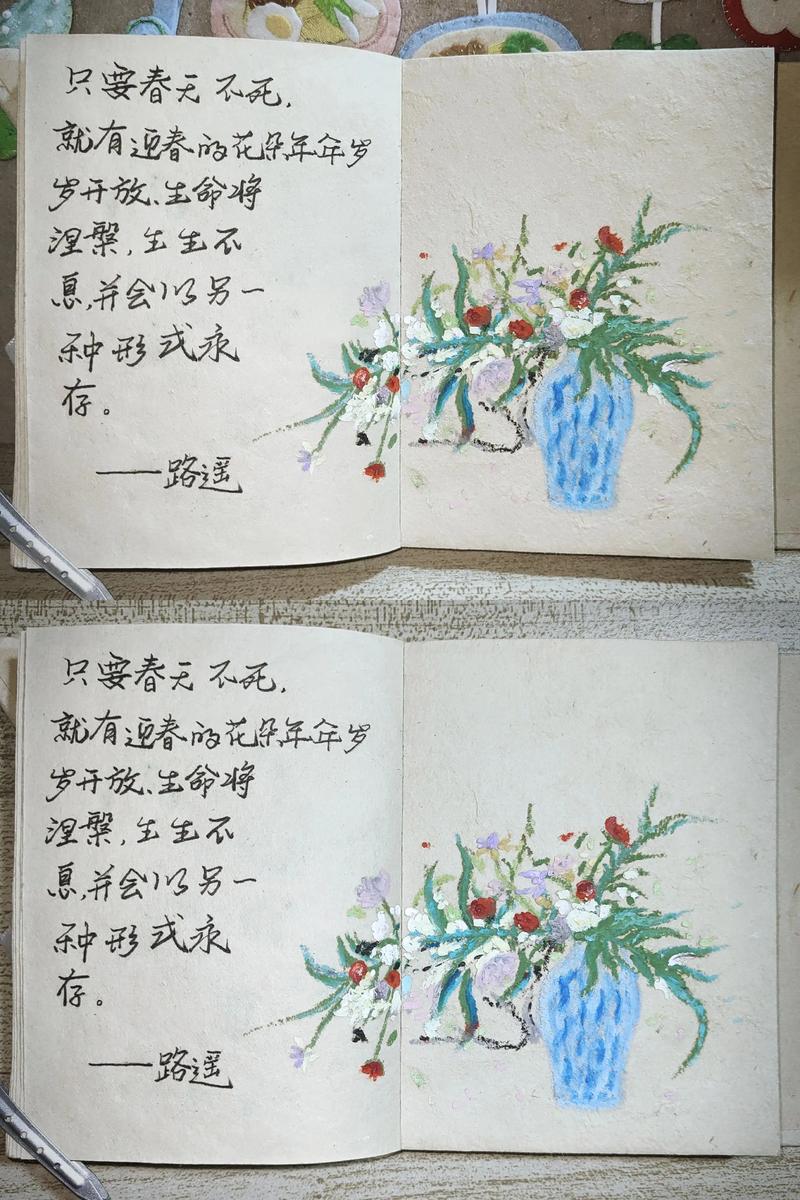 只要春天不死，
就有迎春的花朵年年岁
岁开放、生命将
涅槃，生生不
息，并会以另一
种形式永
存。
——路遥
只要春天不死，
就有迎春的花朵年年岁
岁开放、生命将
涅槃，生生不
息，并会以另一
种形式永
存。
——路遥